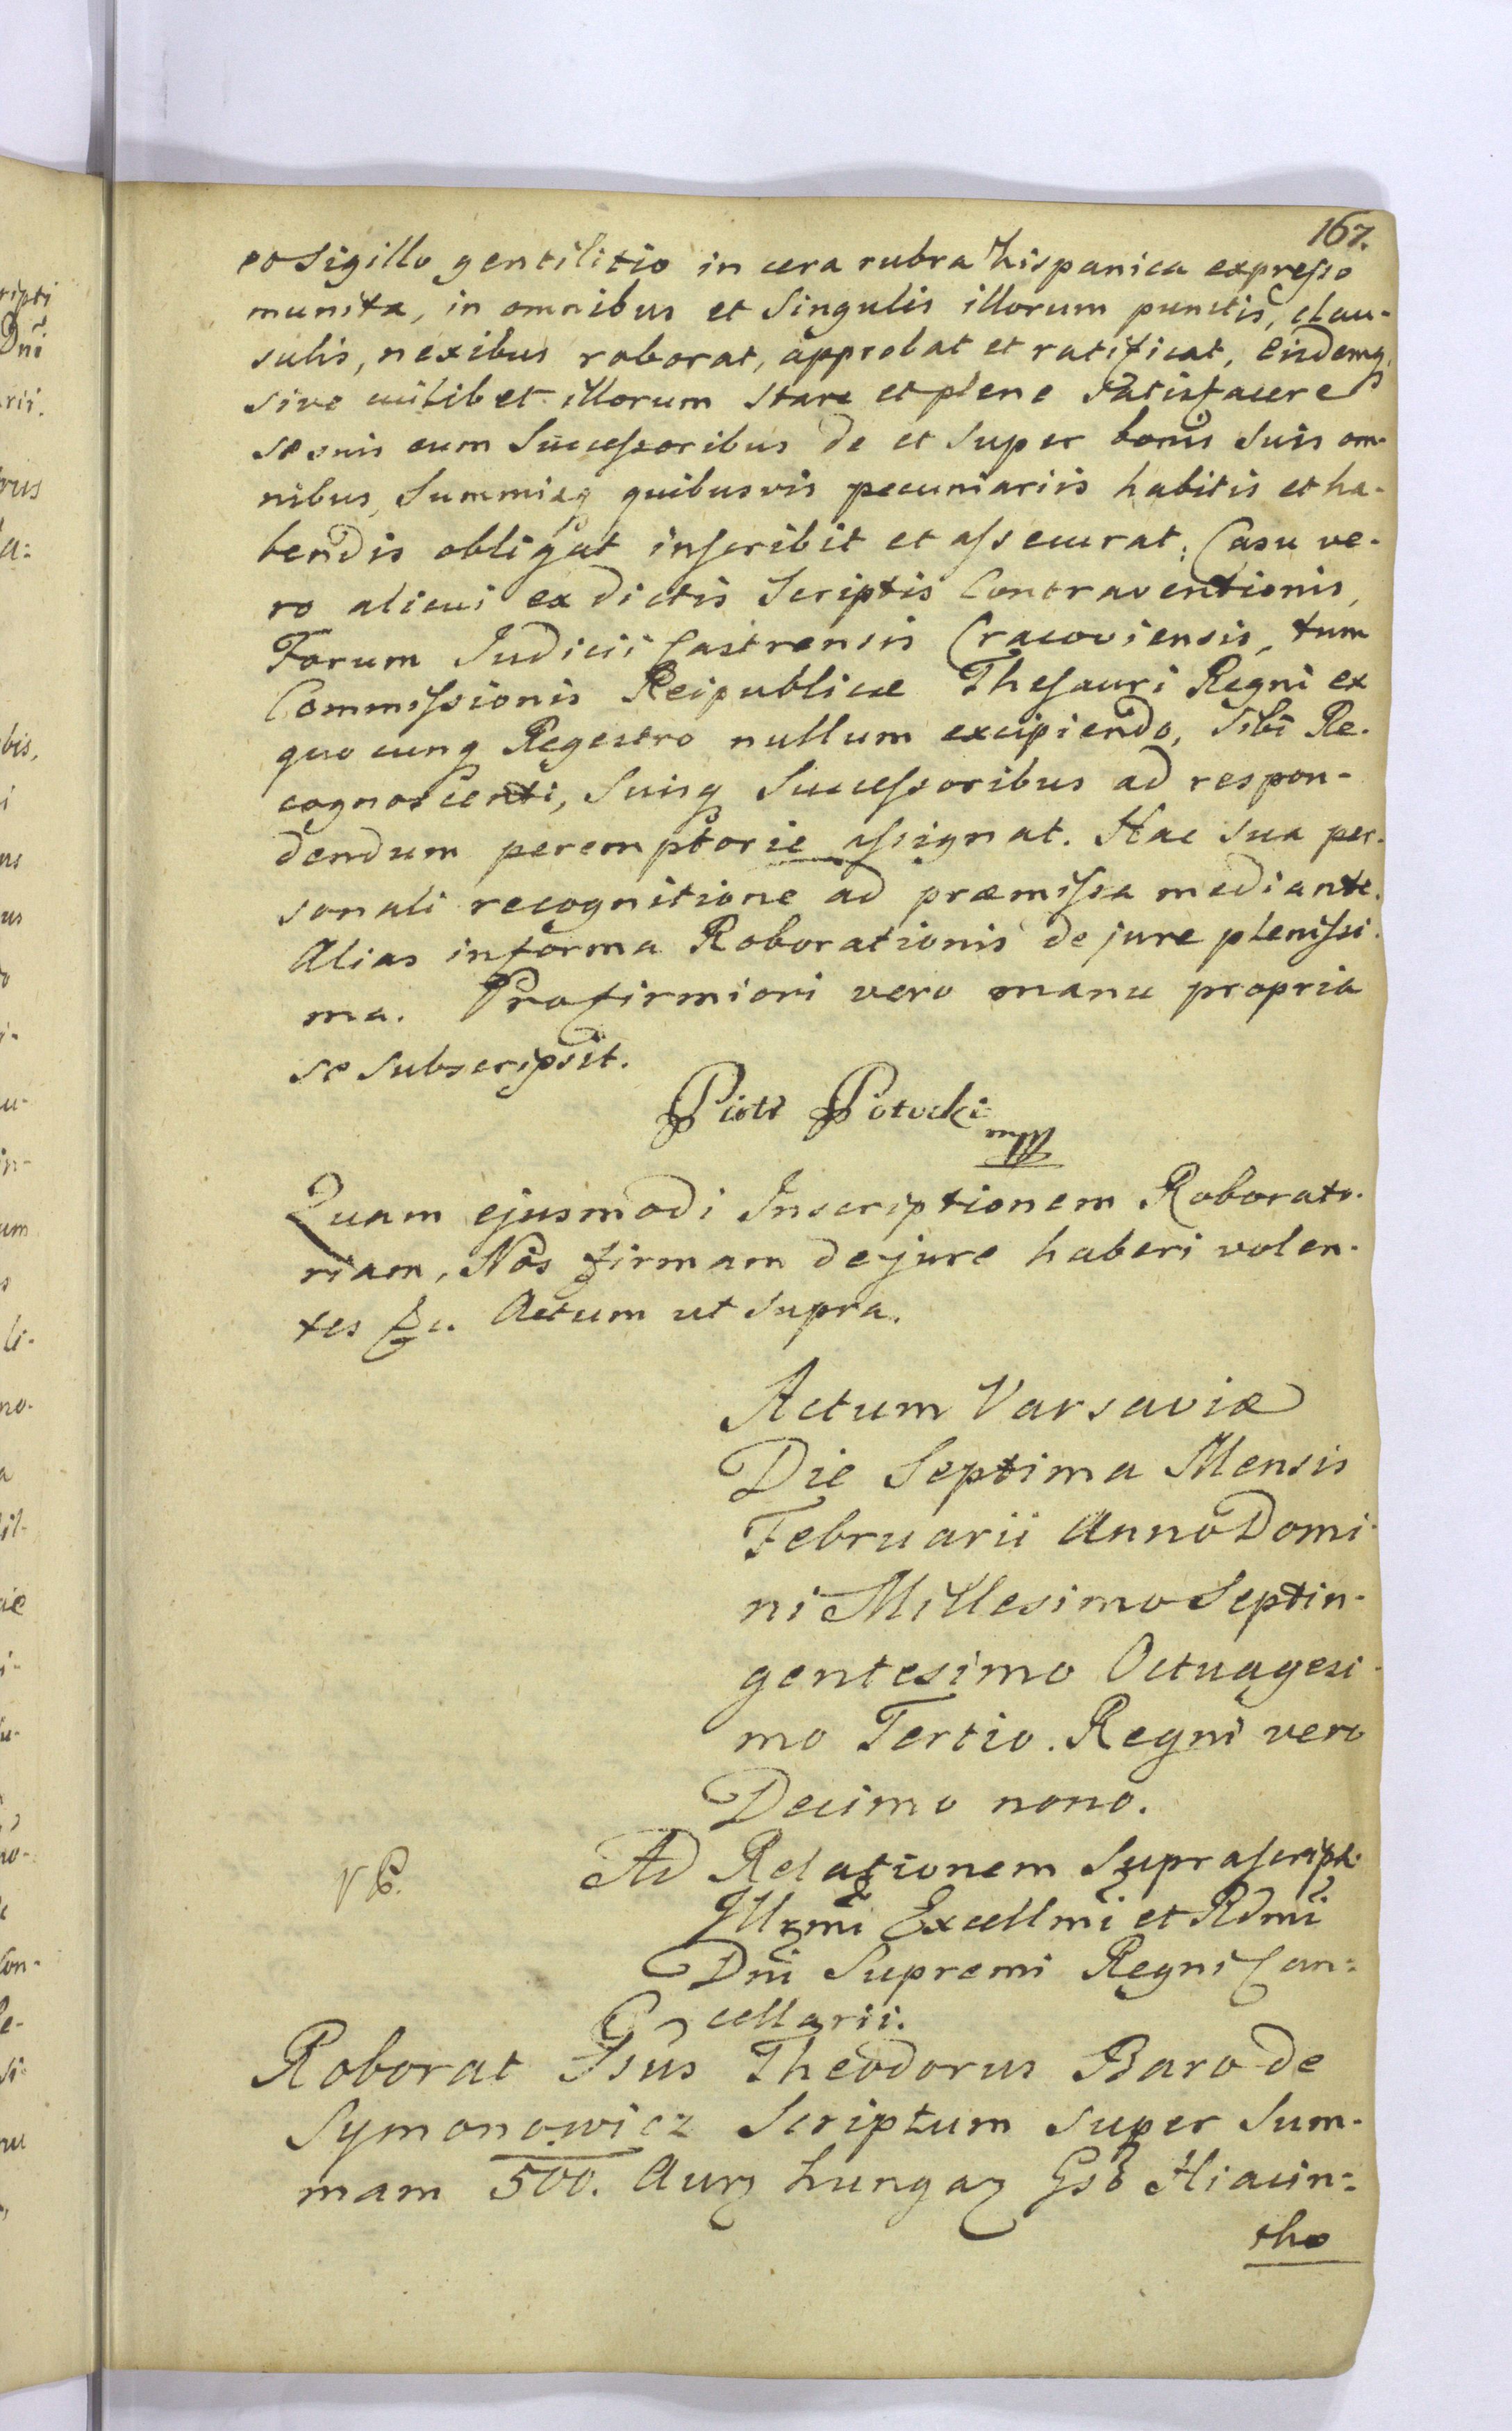 167.
eo Sigillo gentilitio in cera rubra hispanica expresso
munita, in omnibus et Singulis illorum punctis, clau-
sulis, nexibus roborat, approbat et ratificat, Eisdemq
sive cuilibet illorum Stare et plene Satisfacere
se suis cum Successoribus de et Super bonis Suis om-
nibus, Summisq quibusvis pecuniariis habitis et ha-
bendis obligat inscribit et assecurat; Casu ve-
ro alicui ex dictis Scriptis Contraventionis,
Forum Judicii Castrensis Cracoviensis, tum
Commissionis Reipublicæ Thesauri Regni ex
quo cunq Regestro nullum excipiendo, Sibi Re-
cognoscenti, Suisq Successoribus ad respon-
dendum peremptorie assignat. Hac Sua per-
sonali recognitione ad præmissa mediante.
Alias in forma Roborationis de jure plenissi-
ma. Pro firmiori vero manu propria
se Subscripsit.
Piotr Potocki mpp
Quam ejusmodi Inscriptionem Roborato-
riam, Nos firmam de jure haberi volen-
tes &c. Actum ut Supra.
Actum Varsaviæ
Die Septima Mensis
Februarii Anno Domi-
ni Millesimo Septin-
gentesimo Octuagesi-
mo Tertio. Regni vero
Decimo nono.
Ad Relationem Suprascripti
Illrmi Excellmi et Rdmi
Dni Supremi Regni Can-
cellarii.
Roborat Theodorus Baro de
Symonowicz Scriptum Super Sum-
mam 500. Aur hungar Gso Hiacin-
tho
ripti
Dni
rii.
rus
a:
bis,
i
ns
us
u-
in-
um
s
li-
no-
a
il-
ie
i-
no-
Con-
e-
si-